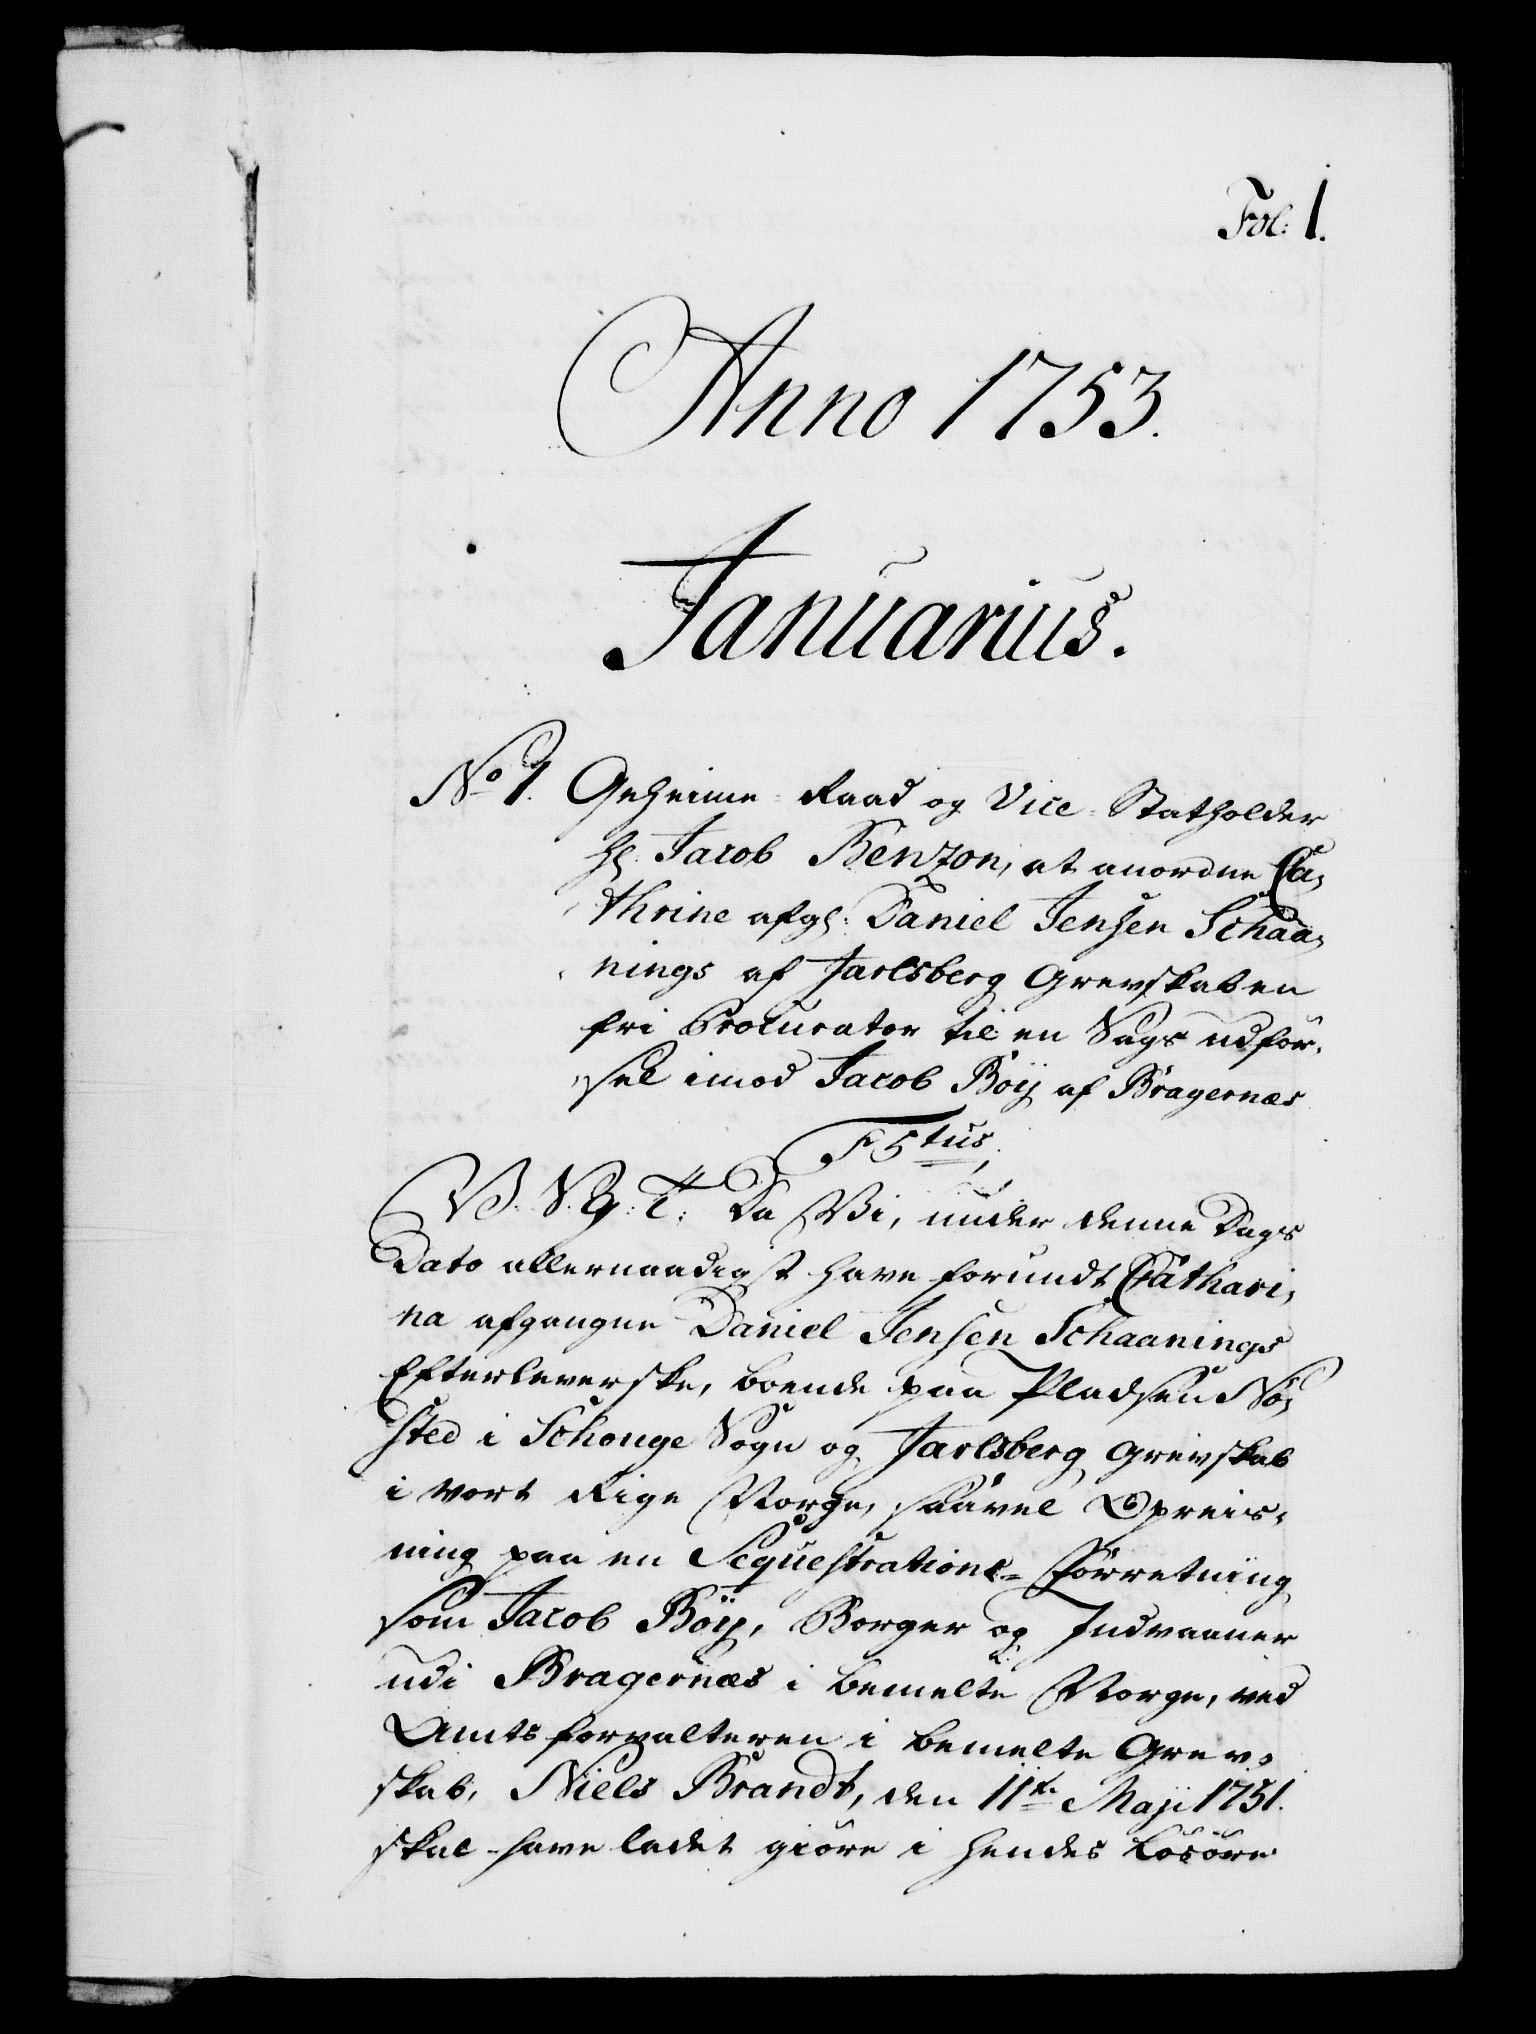 Fol: 1.
Anno 1753.
Januarius.
No 1. Geheime-Raad og Vice-Statholder
Hr. Jacob Benzon, at anordne Ca,
thrine afg: Daniel Jensen Schaa,
nings af Jarlsberg Grevskab en
fri Procurator til en Sags udför,
sel imod Jacob Böij af Bragernæs
F 5tus,
V. S. G. T. Da Vi, under denne Dags
Dato allernaadigst have forundt Cathari,
na afgangne Daniel Jensen Schaanings
Efterleverske, boende paa Pladsen Nö,
sted i Schouge Sogn og Jarlsberg Grevskab
i vort Rige Norge, saavel Opreis,
ning paa en Sequestrations-Forretning
som Jacob Böij, Borger og Indvaaner
udi Bragernæs i bemelte Norge, ved
Amtsforvalteren i bemelte Grev,
skab, Niels Brandt, den 11te Maji 1751.
skal have ladet giöre i hendes Lösöre